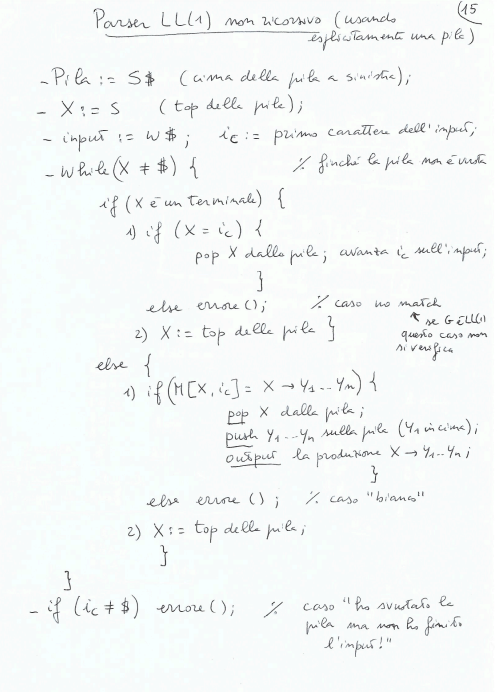 15
Parser LL(1) non ricorsivo (usando
esplicitamente una pila)
- Pila := S$ (cima della pila a sinistra);
- X := S (top della pila);
- input := w$; ic := primo carattere dell'input;
- While (X ≠ $) { % finché la pila non è vuota
if (X è un terminale) {
1) if (X = ic) {
pop X dalla pila; avanza ic sull'input;
}
else errore(); % caso no match
↑ se G è LL(1)
questo caso non
si verifica
2) X := top della pila }
else {
1) if (M[X, ic] = X → Y1 -- Yn) {
pop X dalla pila;
push Y1 -- Yn sulla pila (Y1 in cima);
output la produzione X → Y1 -- Yn;
}
else errore (); % caso "bianco"
2) X := top della pila;
}
}
- if (ic ≠ $) errore(); % caso "ho svuotato la
pila ma non ho finito
l'input!"